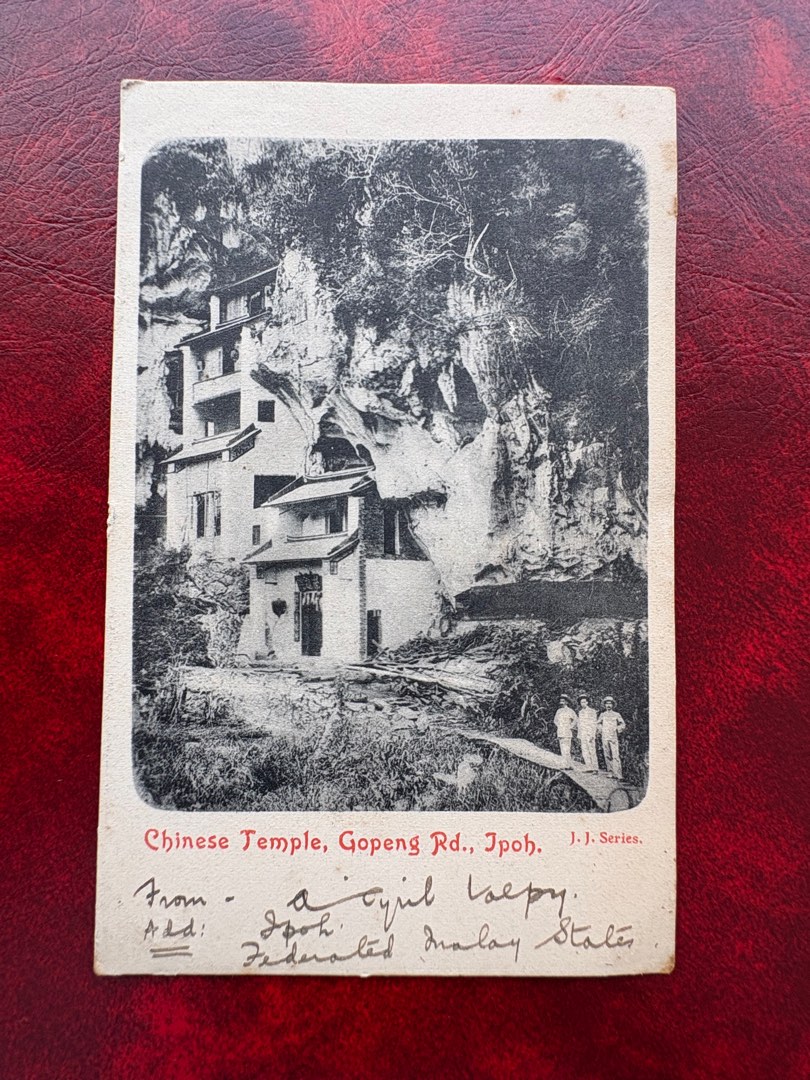 Chinese Temple, Gopeng Rd., Ipoh. J. J. Series.
From - A Cyril Valpy.
Add: Ipoh.
Federated Malay States.